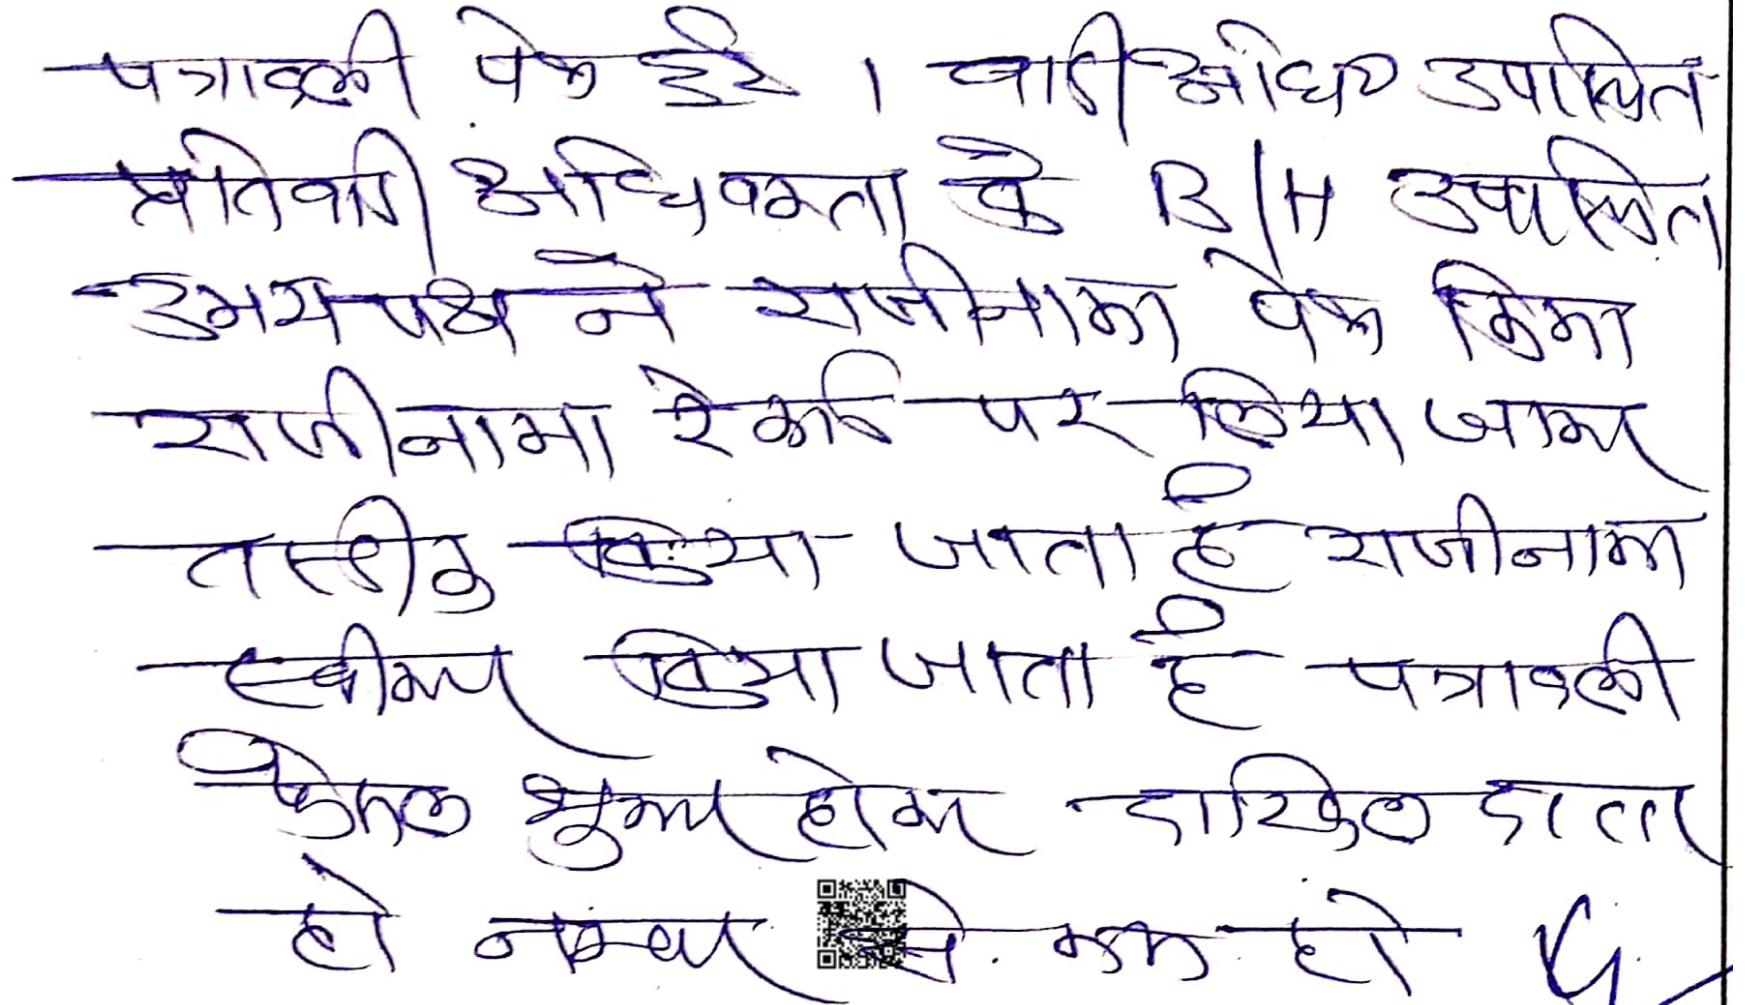 पत्रावली पेश हुई । वादी अधि० उपस्थित
प्रतिवादी अधिवक्ता के B/H उपस्थित
उभयपक्ष ने राजीनामा पेश किया
राजीनामा रेकर्ड पर लिया जाकर
तस्दीक किया जाता है राजीनामा
स्वीकार किया जाता है पत्रावली
फैसल शुमार होकर दाखिल दफ्तर
हो नम्बर से कम हो